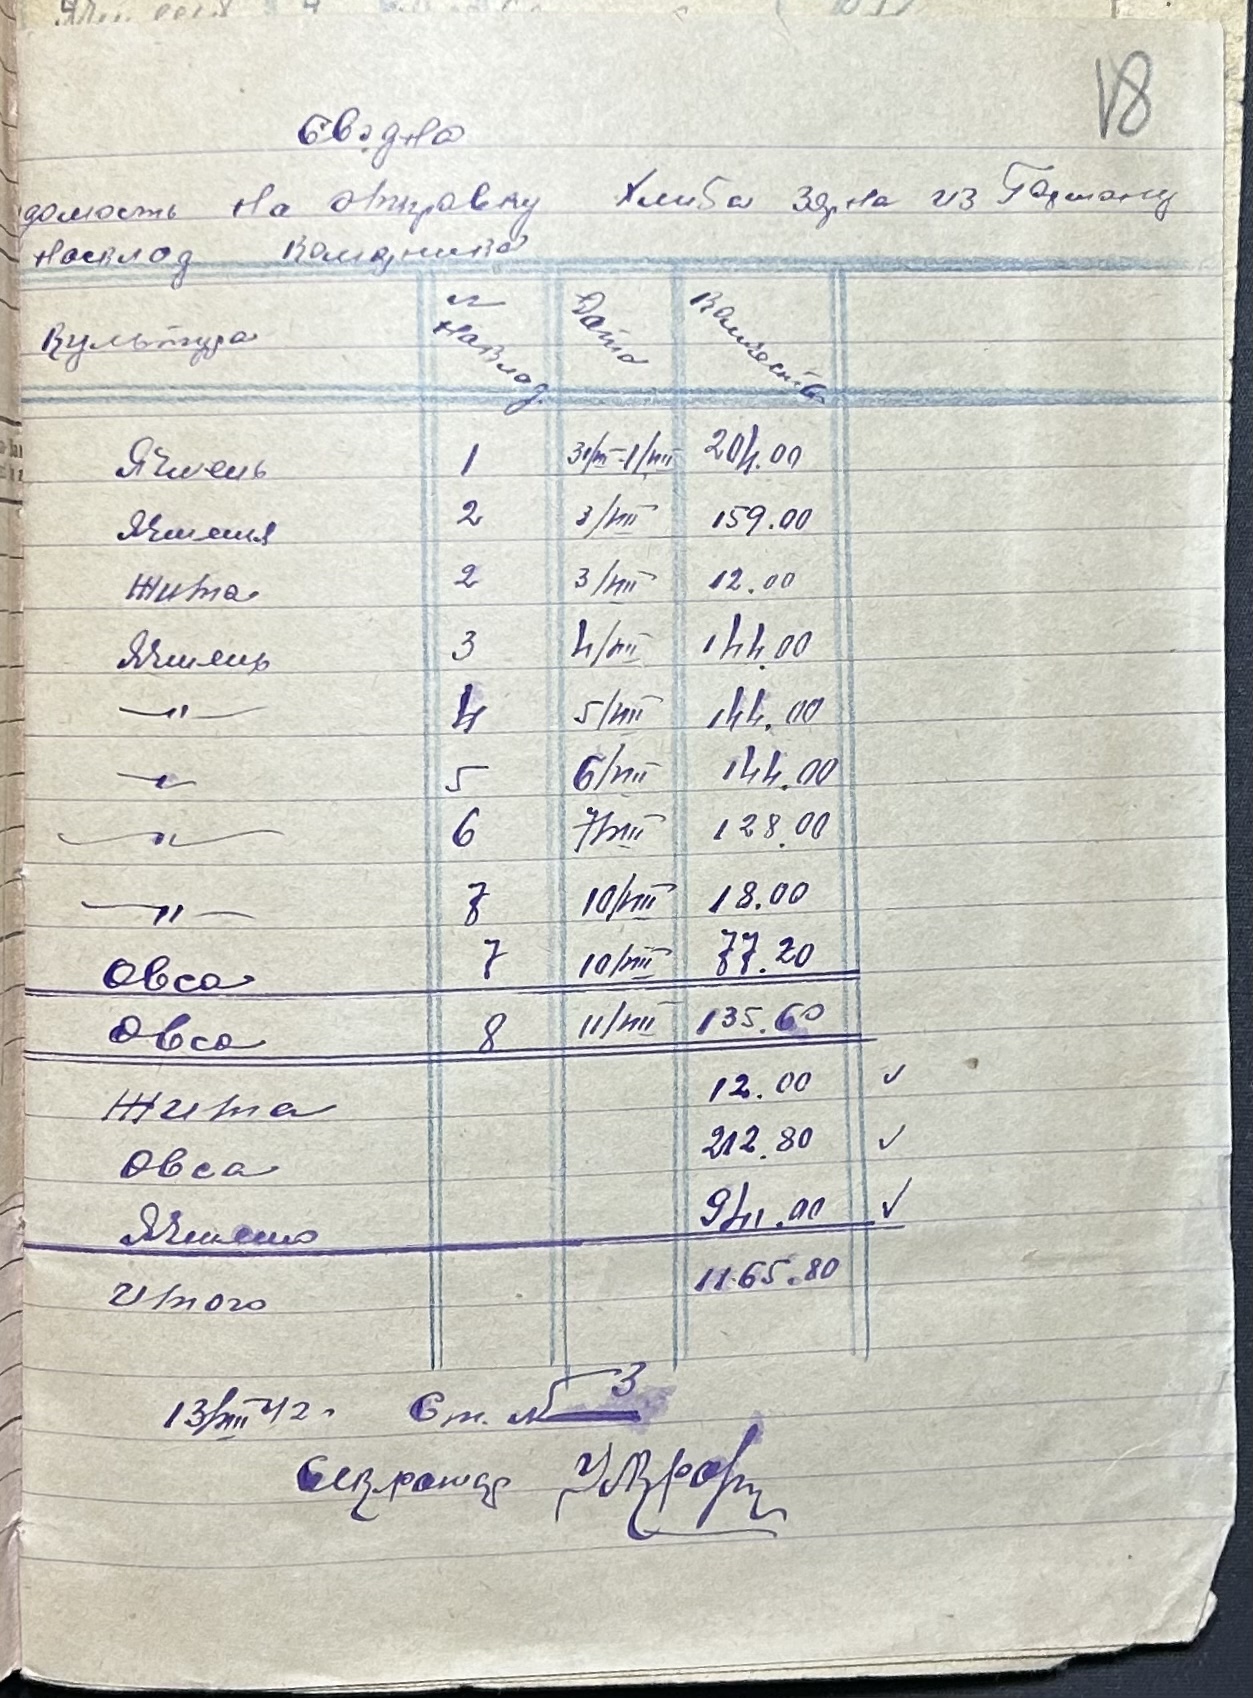 18
Сводна
домость на отправку хлиба зерна из Гарману
насклад Комарника
Культура № наклад. Дата Количеств
Ячмень 1 31/VII-1/VIII 204.00
Ячменя 2 3/VIII 159.00
Жита 2 3/VIII 12.00
Ячмень 3 4/VIII 144.00
—"— 4 5/VIII 144.00
—"— 5 6/VIII 144.00
—"— 6 7/VIII 128.00
—"— 7 10/VIII 18.00
Овса 7 10/VIII 77.20
Овса 8 11/VIII 135.60
Жита 12.00 ✓
Овса 212.80 ✓
Ячменю 941.00 ✓
Итого 1165.80
13/VIII 42 г. Ст. № 3